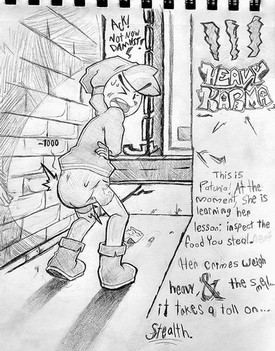 Ack!
Not Now
DAMMIT!
HEAVY
KARMA
~1000
This is
Petunia! At the
moment, she is
learning her
lesson; inspect the
food you steal.
Her crimes weigh
heavy & the
it takes a toll on...
Stealth.